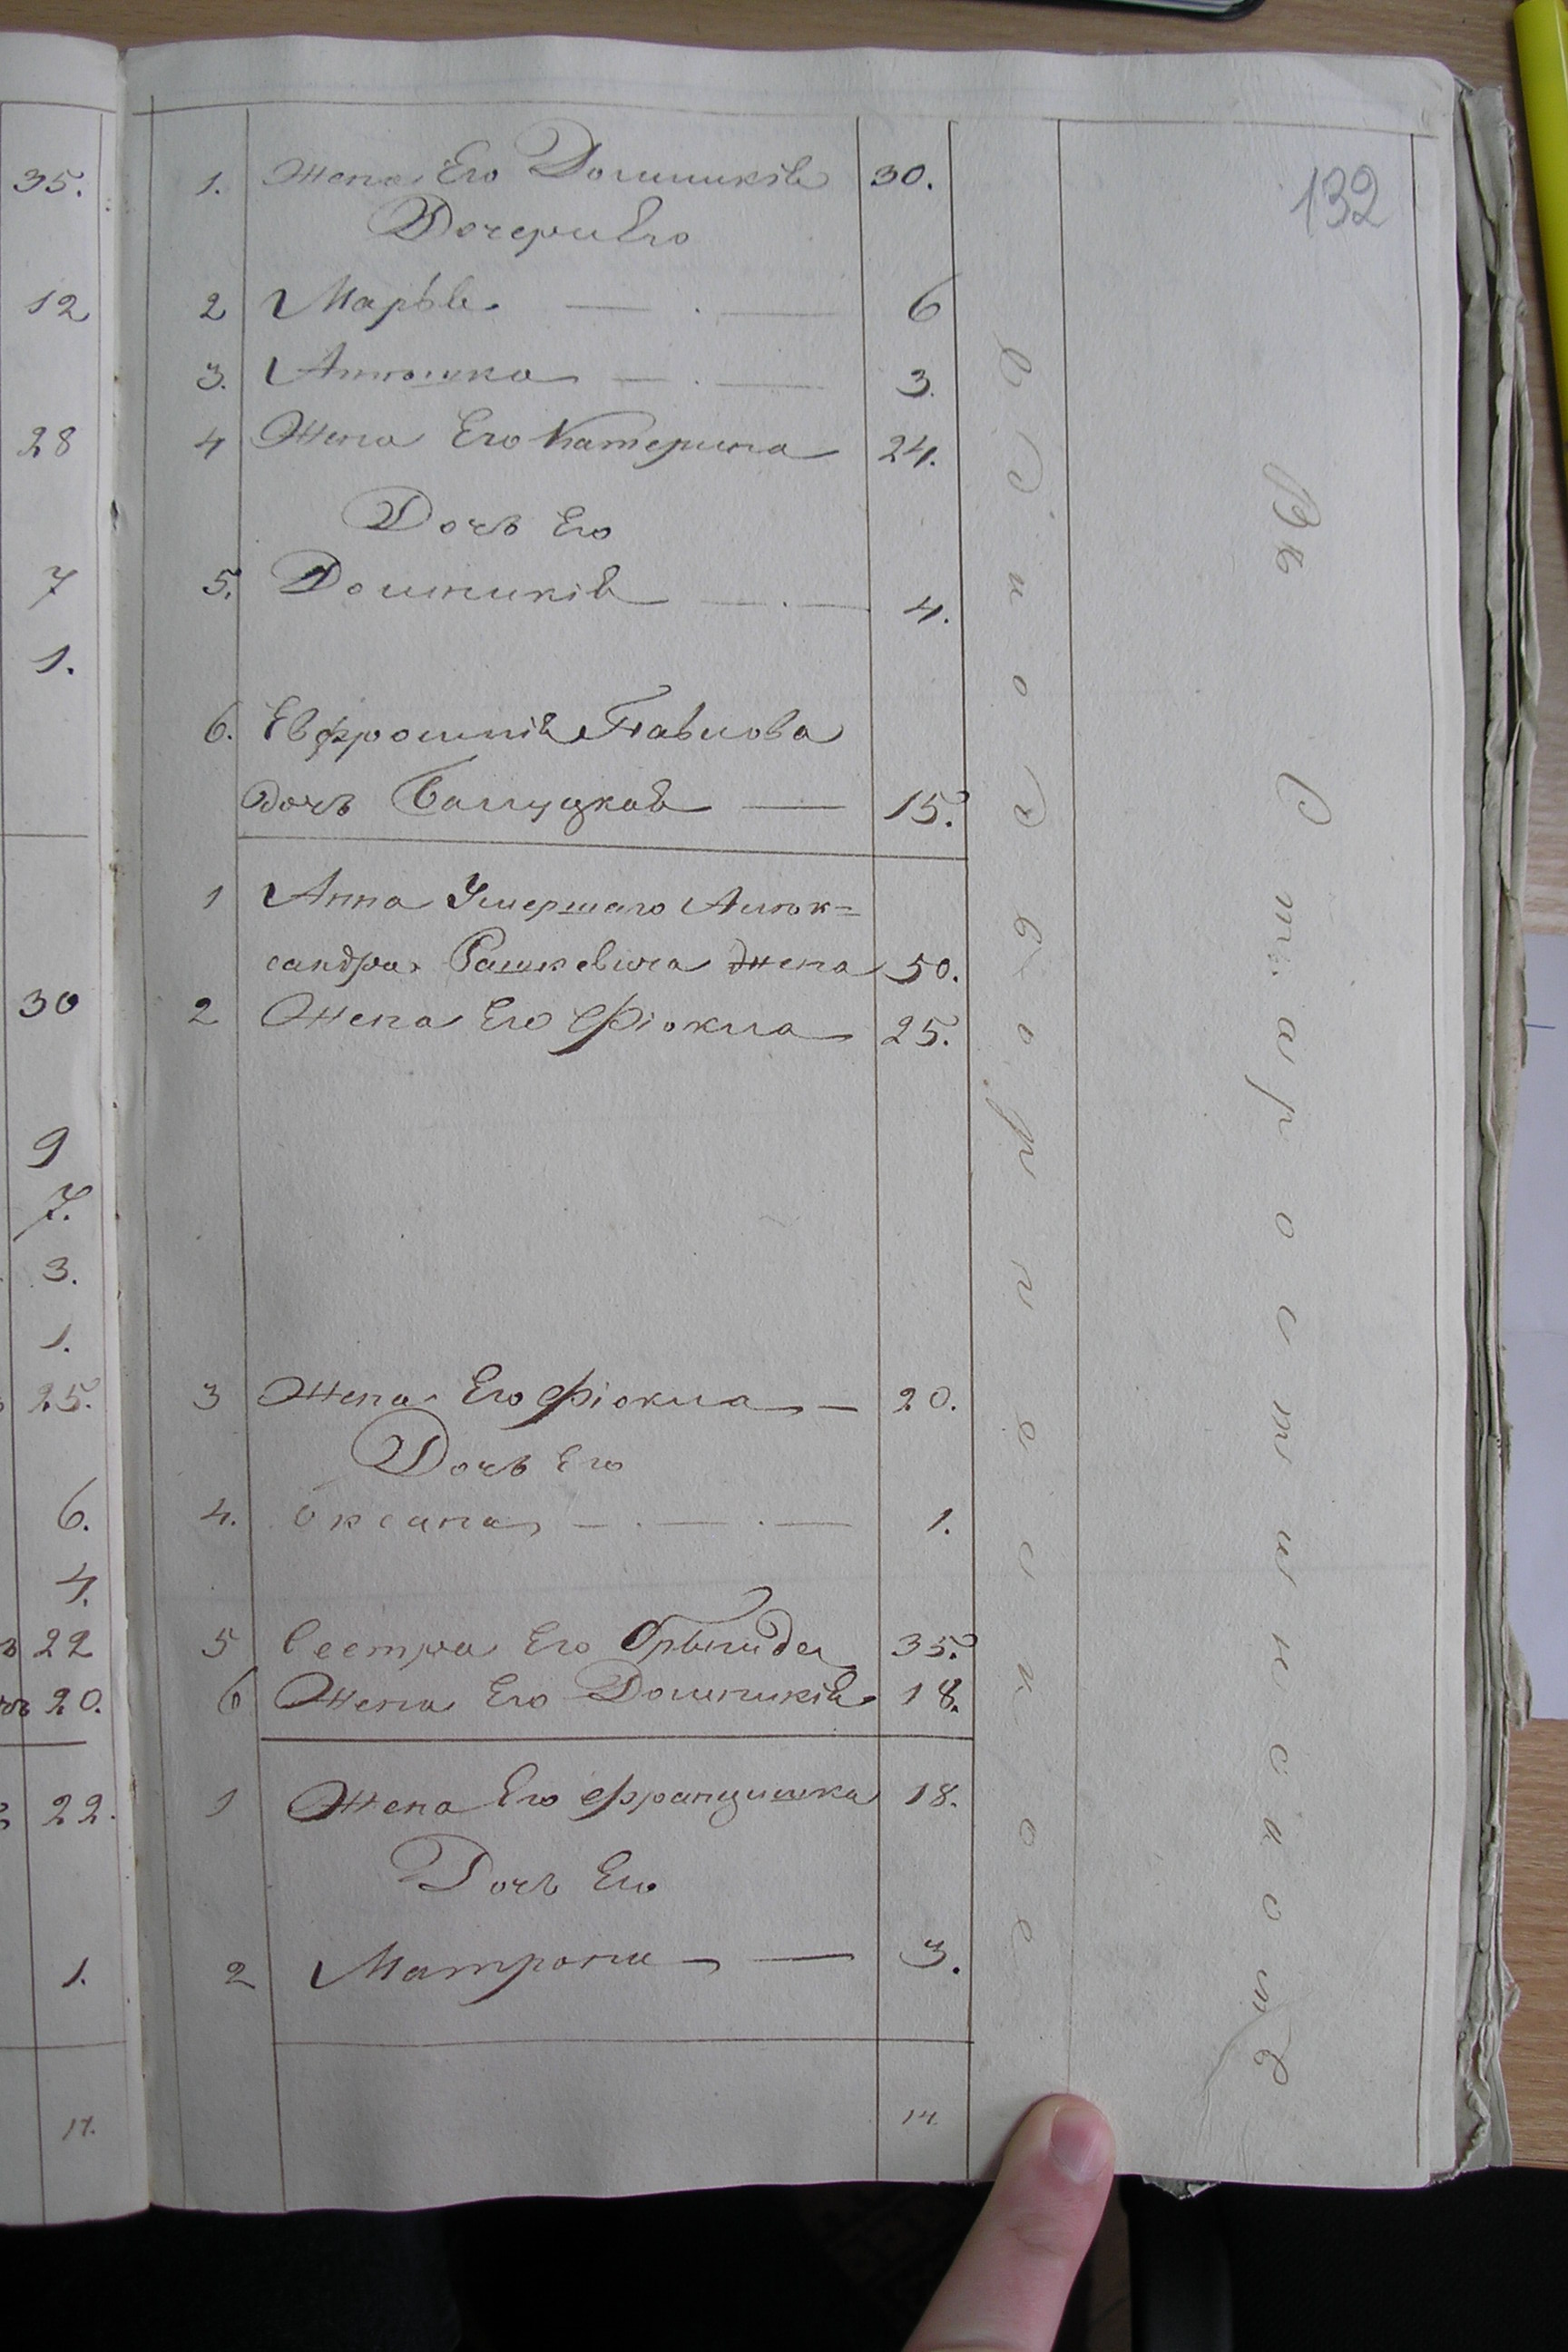 132
35.
12
28
7
1.
30
9
7.
3.
1.
25.
6.
4.
22
20.
22.
1.
17.
1. Жена Его Доминикія 30.
Дочери Его
2 Марья 6
3. Аннюшка 3.
4 Жена Его Катерина 24.
Дочь Его
5. Доминикія 4.
6. Евфросинія Павлова
дочь 15.
1 Анна Умершаго Алек=
сандра Рашкевича жена 50.
2 Жена Его Фіокла 25.
3 Жена Его Фіокла 20.
Дочь Его
4. Оксана 1.
5 Сестра Его Брыгида 35.
6 Жена Его Доминикія 18.
1 Жена Его Францишка 18.
Дочь Его
2 Матрона 3.
14.
Единодворческое
Въ Старостинскомъ